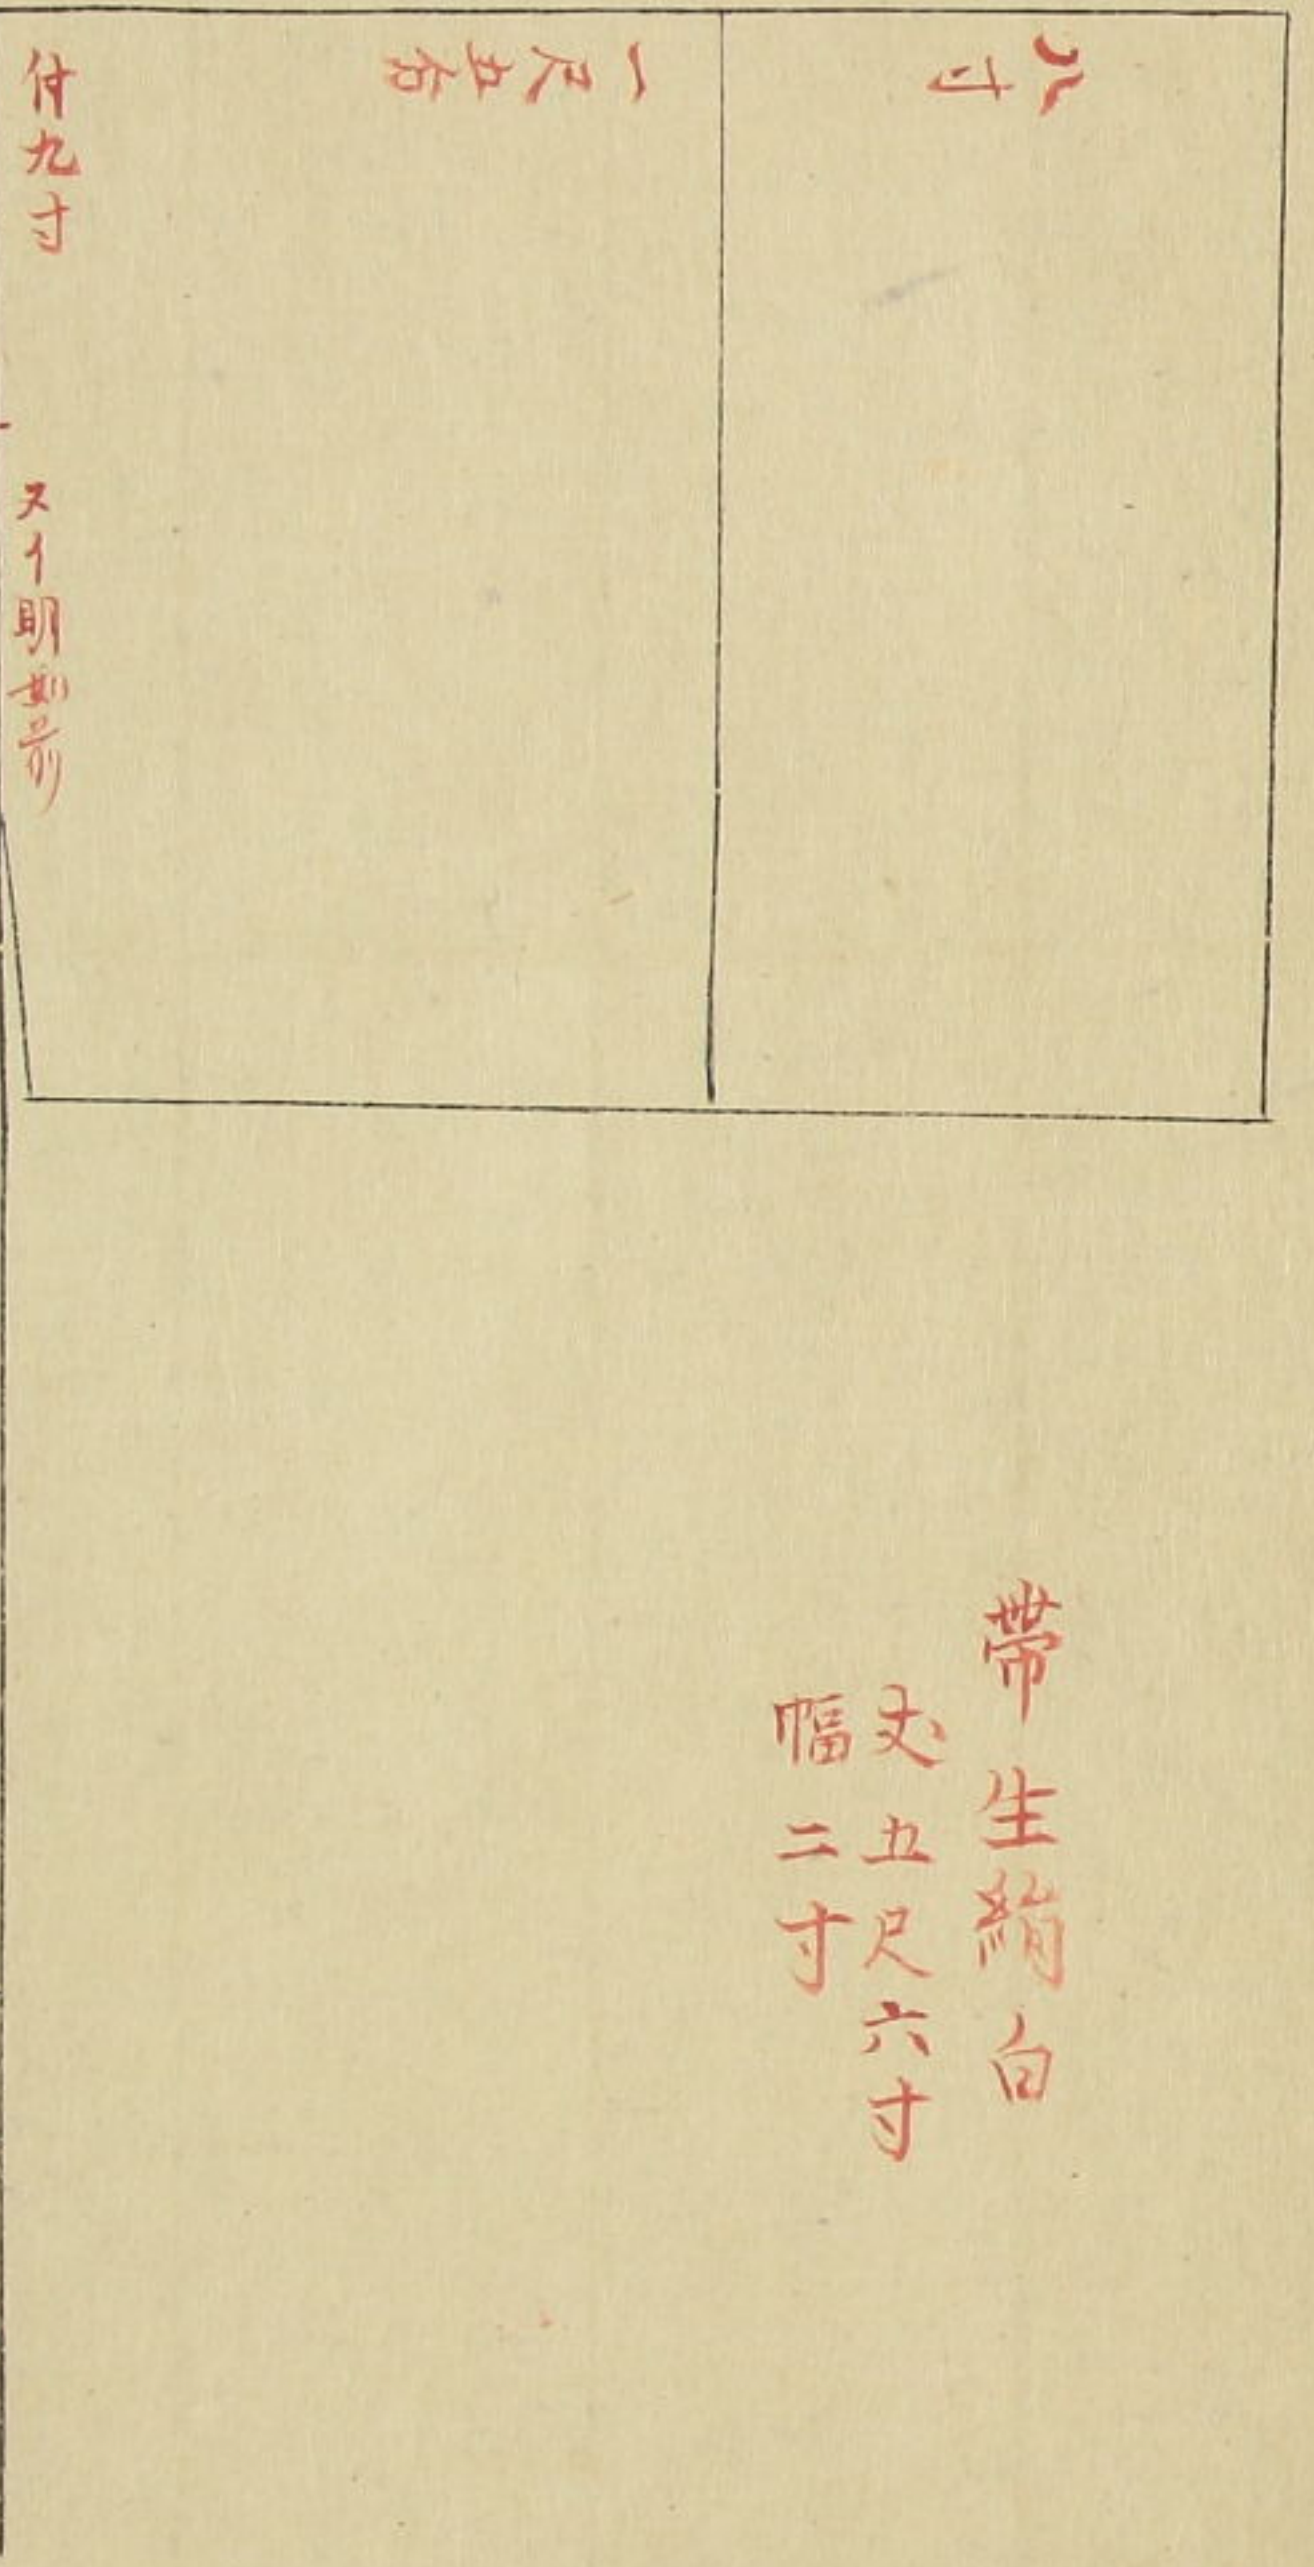 八寸
一尺五分
付九寸
ヌイ明如前
帯生絹白
丈五尺六寸
幅二寸